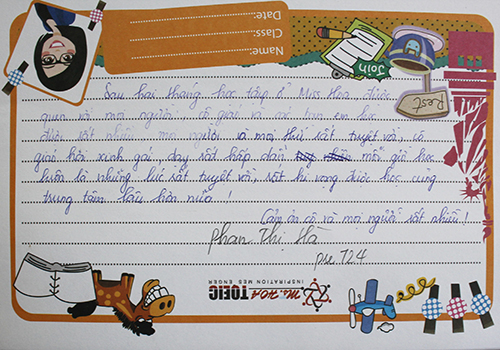 Name:
Class:
Date:
Join
Rest
Sau hai tháng học tập ở Miss Hoa được
quen với mọi người, cô giáo và các bạn em học
được rất nhiều mọi người và mọi thứ rất tuyệt vời, cô
giáo hòa xinh gái, dạy rất hấp dẫn mỗi giờ học
luôn là những lúc rất tuyệt vời, rất hi vọng được học cùng
trung tâm lâu hơn nữa !
Cảm ơn cô và mọi người rất nhiều !
Phan Thị Hà
pre 724
Ms. HOA TOEIC
INSPIRATION MESSENGER